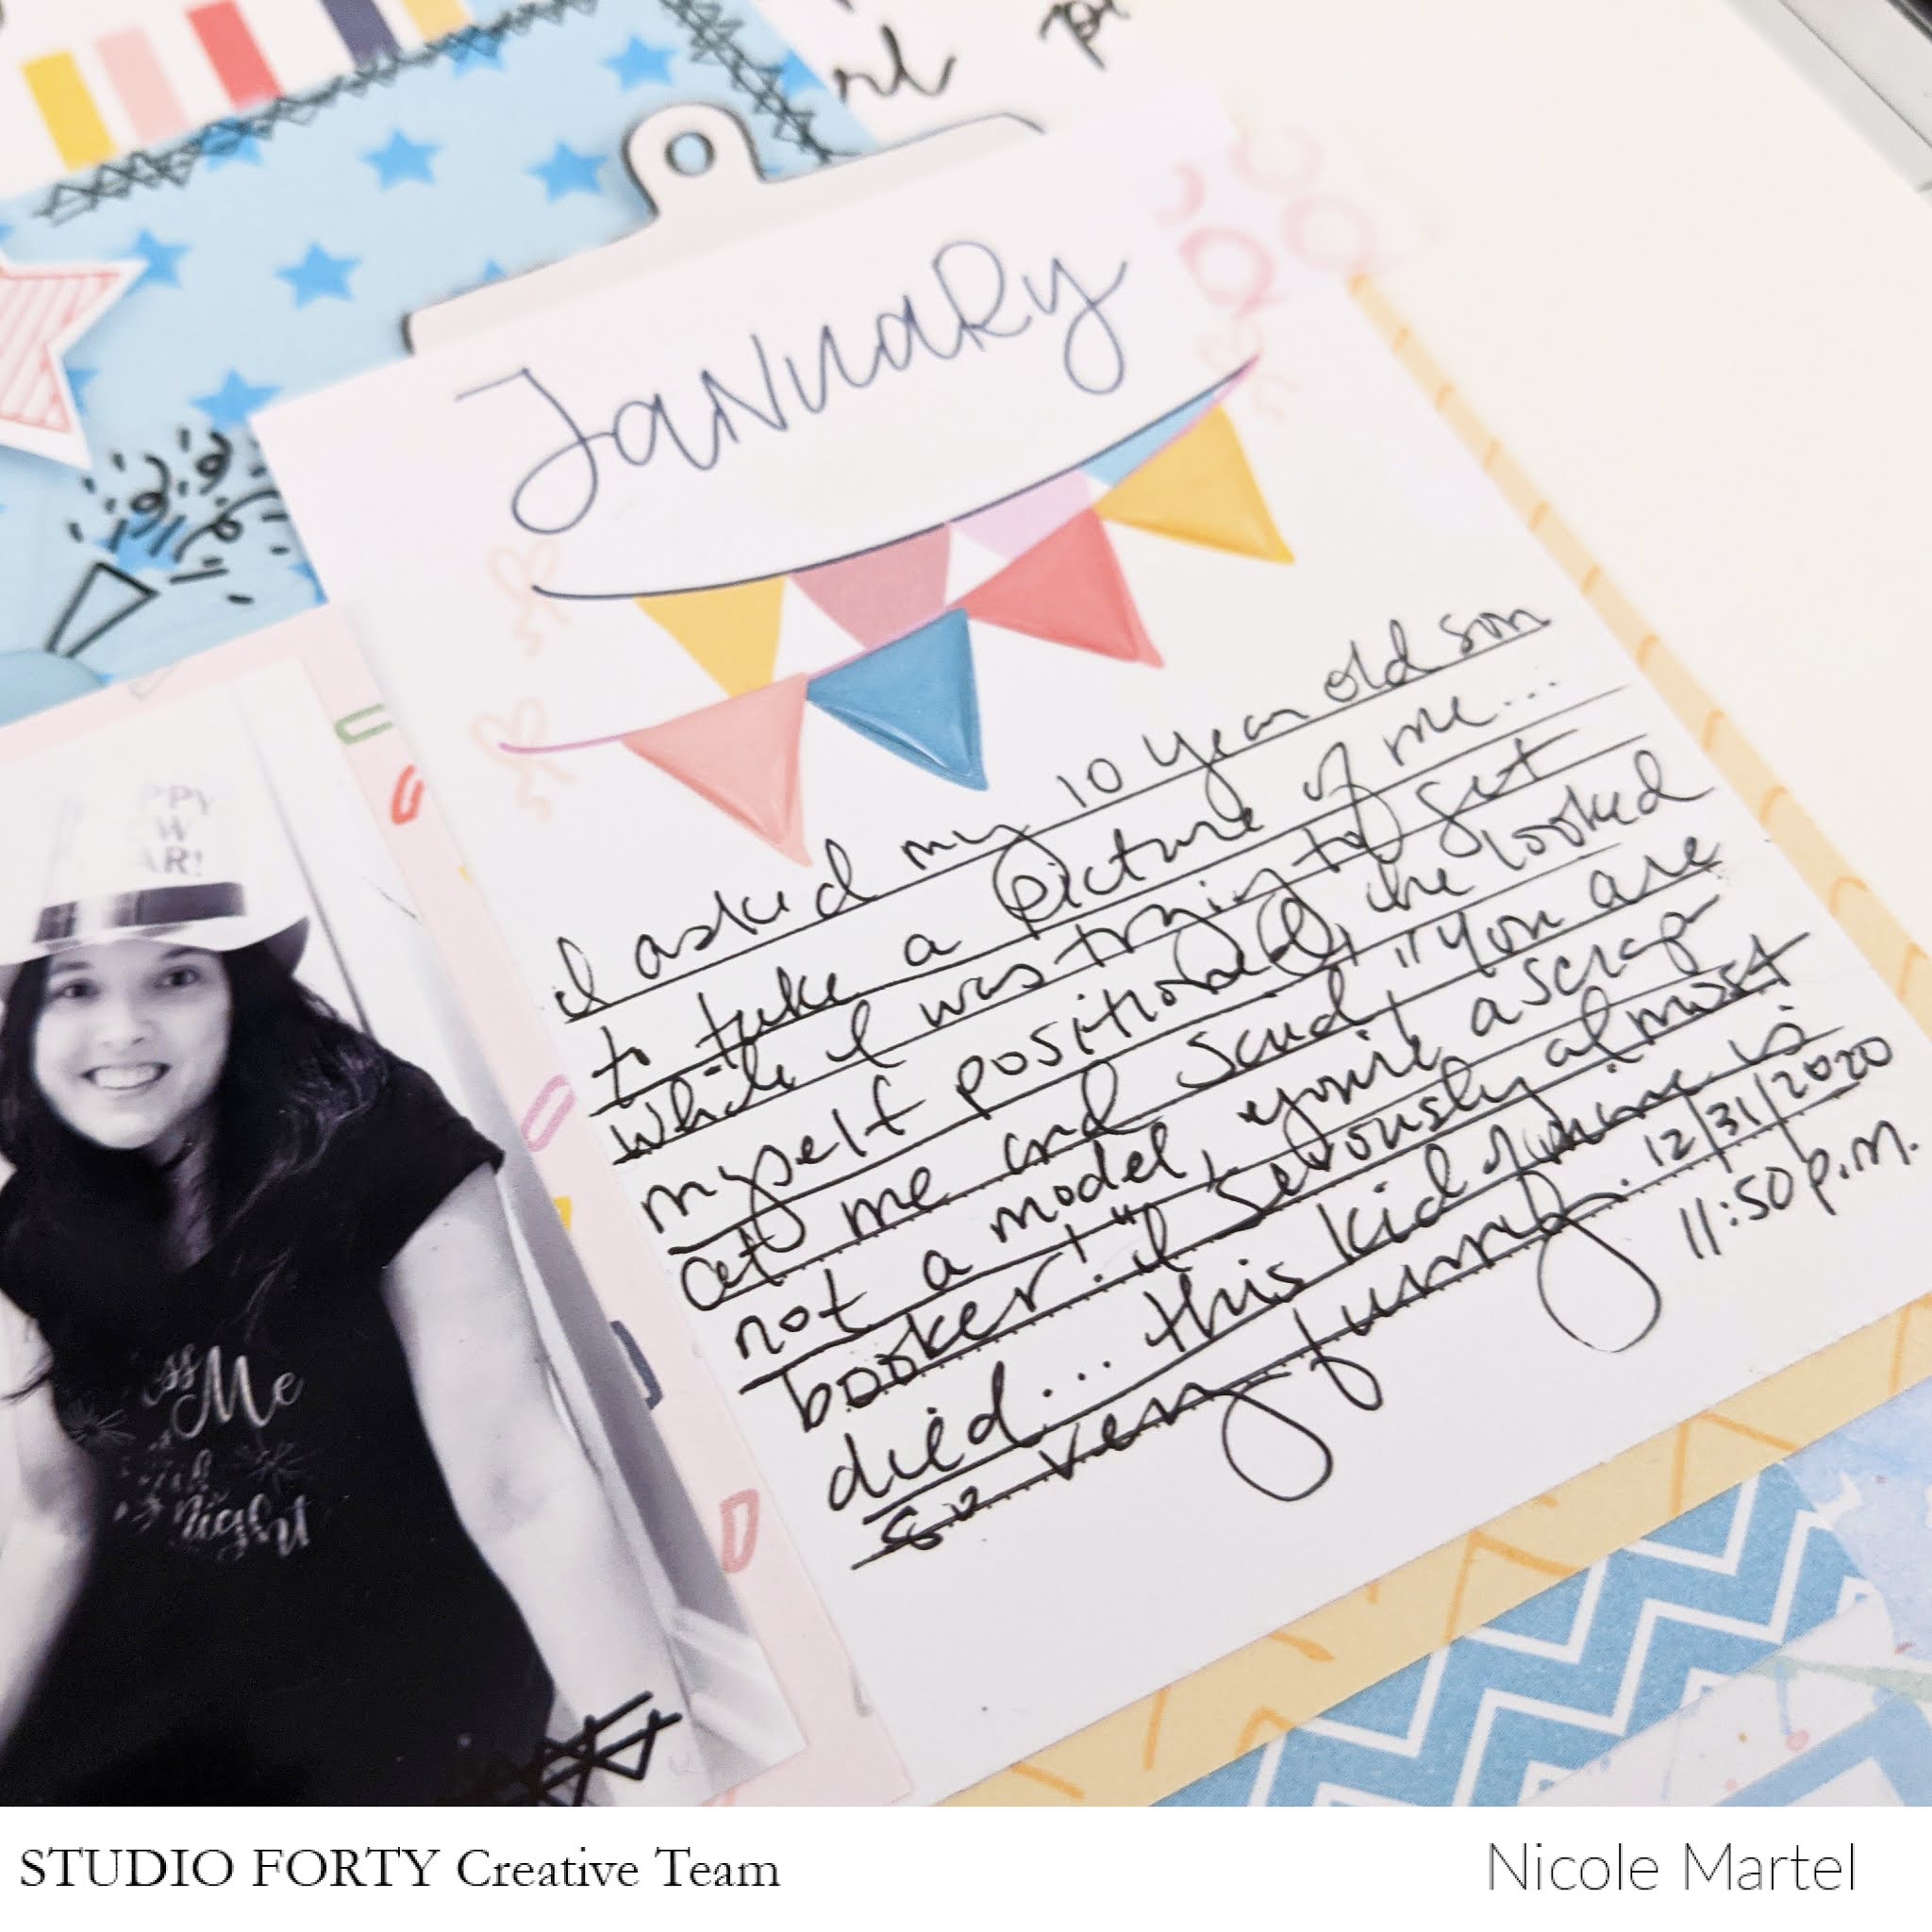 JaNuaRy
I asked my 10 year old son
to take a picture of me...
while I was trying to get
myself positioned, he looked
at me and said, "You are
not a model, you're a scrap
booker!" I seriously almost
died... this kid of mine is
so very funny. 12/31/2020
11:50 p.m.
PPY
W
AR!
ss
Me
night
STUDIO FORTY Creative Team
Nicole Martel